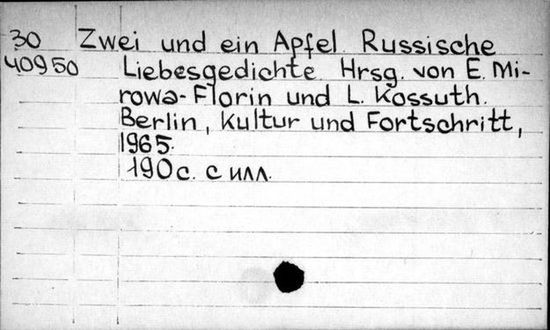 30 Zwei und ein Apfel. Russische
40950 Liebesgedichte Hrsg. von E. Mi-
rowa-Florin und L. Kossuth.
Berlin, Kultur und Fortschritt,
1965.
190 с. с илл.